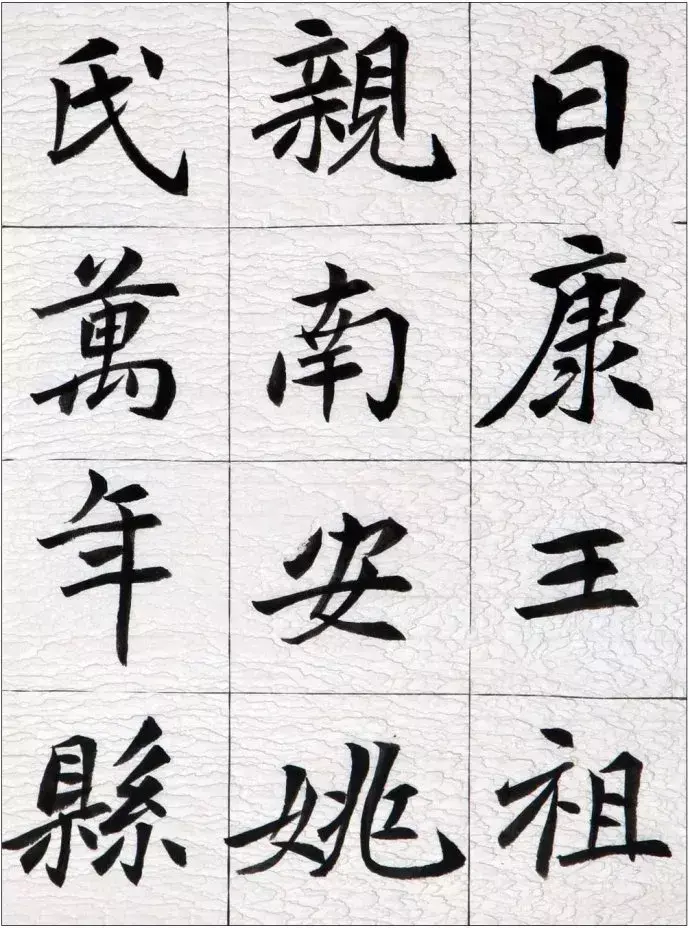 日康王祖
親南安姚
氏萬年縣